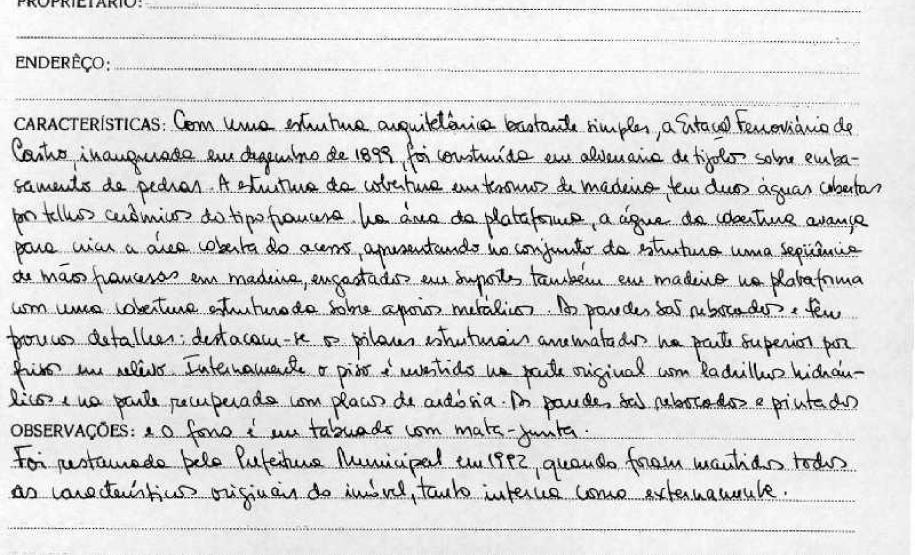 PROPRIETÁRIO:
ENDERÊÇO:
CARACTERÍSTICAS: Com uma estrutura arquitetônica bastante simples, a Estação Ferroviária de
Castro inaugurada em dezembro de 1899, foi construída em alvenaria de tijolos sobre emba-
samento de pedras. A estrutura da cobertura em tesouras de madeira, tem duas águas cobertas
por telhas cerâmicas do tipo francesa. Na área da plataforma, a água da cobertura avança
para criar a área coberta do acesso, apresentando no conjunto da estrutura uma seqüência
de mãos francesas em madeira, engastados em suportes também em madeira na plataforma
com uma cobertura estruturada sobre apoios metálicos. As paredes são rebocadas e têm
poucos detalhes: destacam-se os pilares estruturais arrematados na parte superior por
friso em relêvo. Internamente o piso é revestido na parte original com ladrilhos hidráu-
licos e na parte recuperada com placas de ardósia. As paredes são rebocados e pintados
OBSERVAÇÕES: e o forro é em tabuado com mata-junta.
Foi restaurada pela Prefeitura Municipal em 1992, quando foram mantidas todas
as características originais do imóvel, tanto interna como externamente.